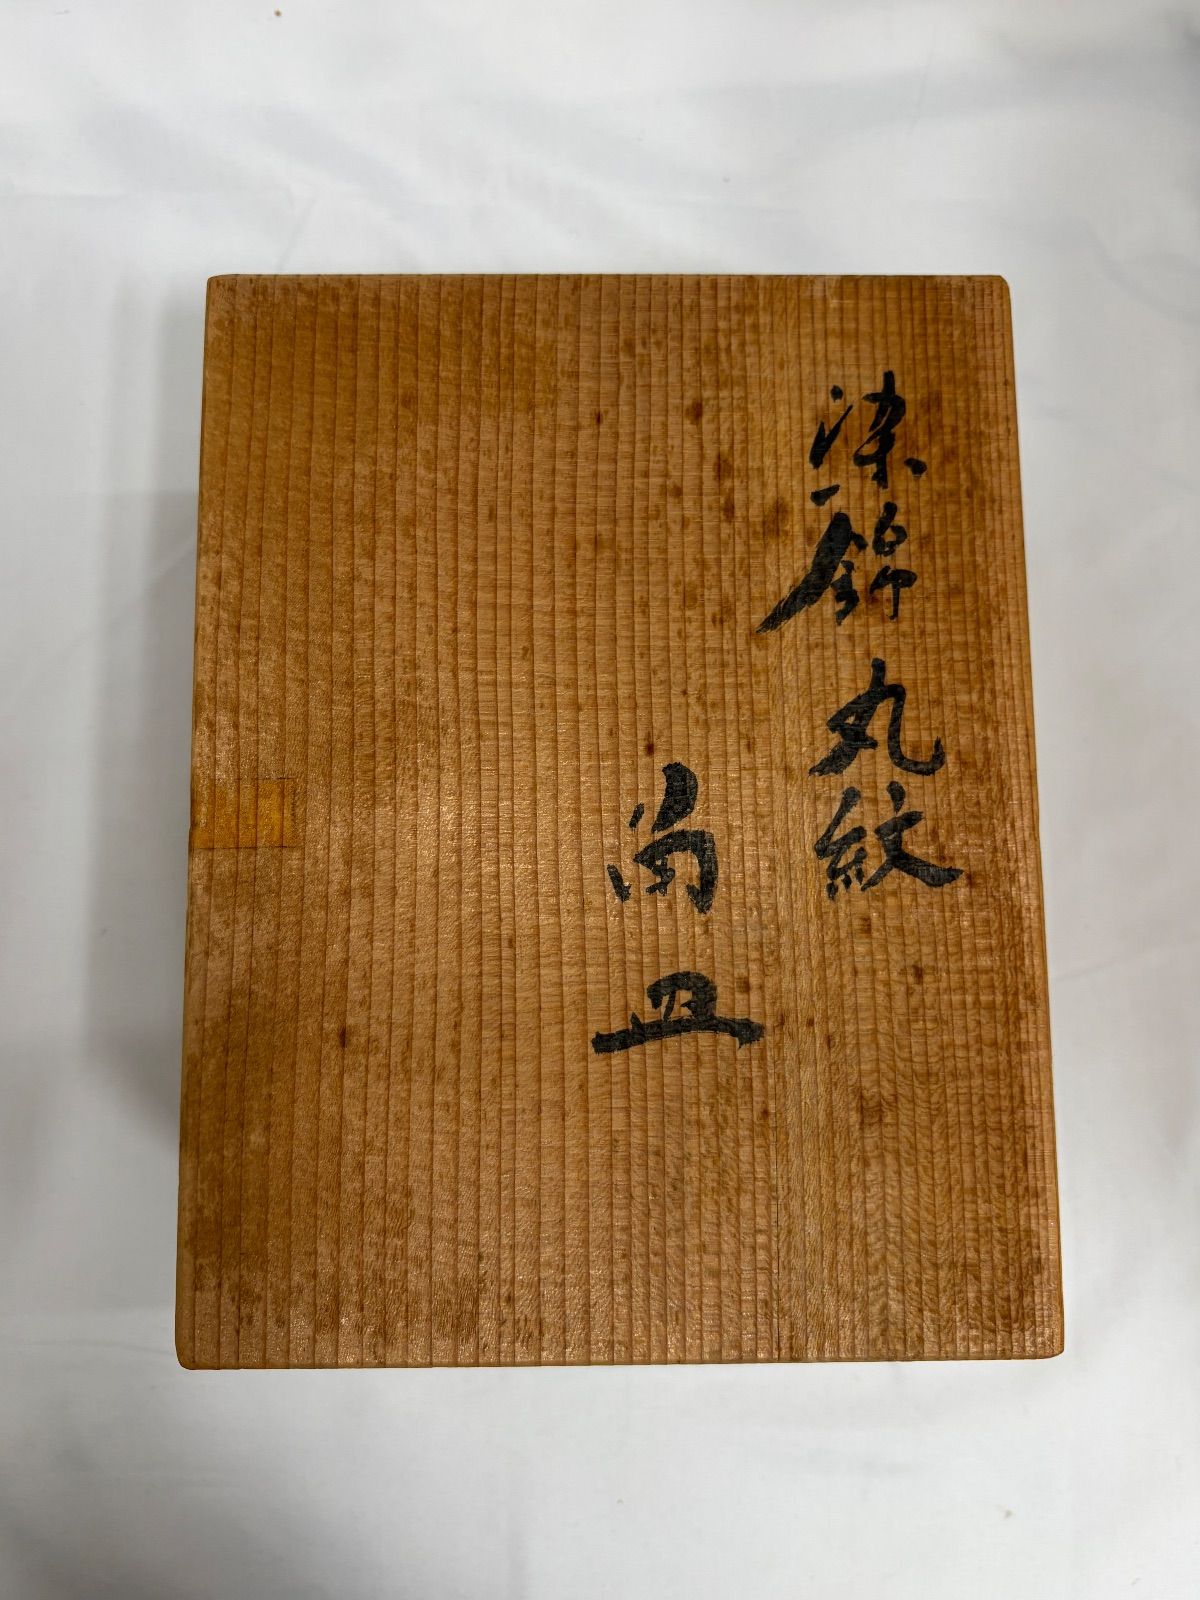 染錦丸紋
向皿